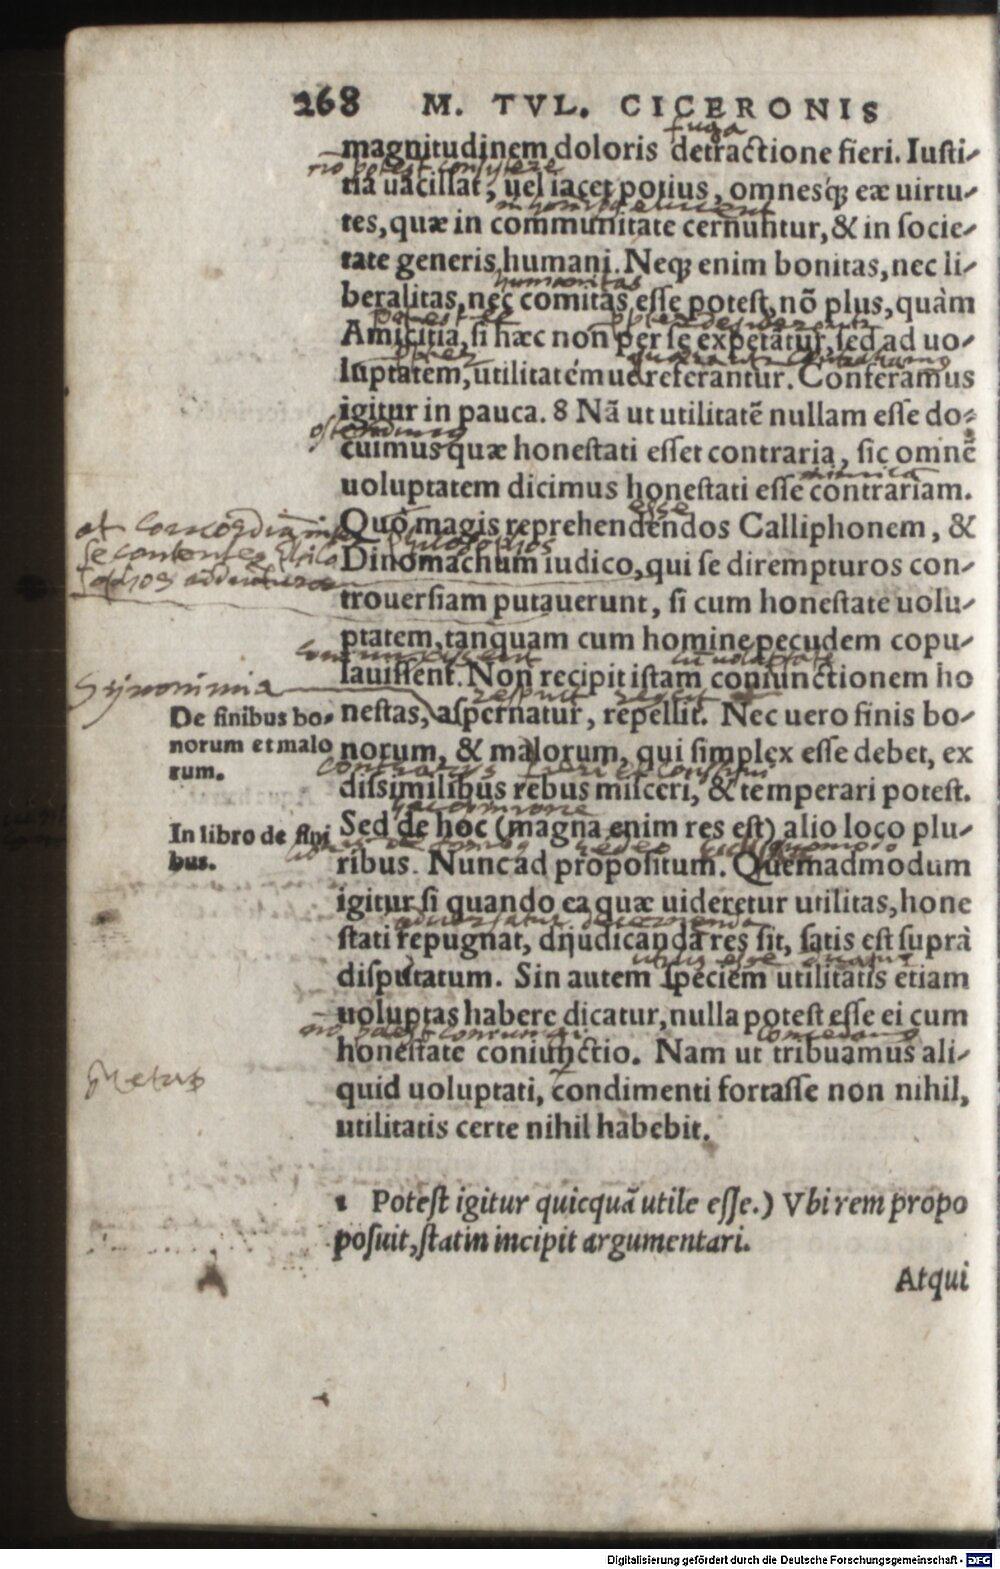 268 M. TVL. CICERONIS
fuga
magnitudinem doloris detractione fieri. Iusti-
nō potest consistere
tia uacillat, uel iacet potius, omnesq́; eæ uirtu-
tes, quæ in communitate cernuntur, & in socie-
tate generis humani. Neq; enim bonitas, nec li-
humanitas
beralitas, nec comitas esse potest, nō plus, quàm
potest
Amicitia, si hæc non per se expetātur, sed ad uo-
luptatem, utilitatém ue referantur. Conferamus
igitur in pauca. 8 Nā ut utilitatē nullam esse do-
ostendimus
cuimus quæ honestati esset contraria, sic omnē
inimicā
uoluptatem dicimus honestati esse contrariam.
esse
Quo magis reprehendendos Calliphonem, &
philosophos
Dinomachum iudico, qui se dirempturos con-
trouersiam putauerunt, si cum honestate uolu-
ptatem, tanquam cum homine pecudem copu-
cū uoluptate
lauissent. Non recipit istam coniunctionem ho
Synonimia
respuit
nestas, aspernatur, repellit. Nec uero finis bo-
De finibus bo-
norum et malo
rum.
norum, & malorum, qui simplex esse debet, ex
dissimilibus rebus misceri, & temperari potest.
Sed de hoc (magna enim res est) alio loco plu-
In libro de fini
bus.
redeo quomodo
ribus. Nunc ad propositum. Quemadmodum
igitur si quando ea quæ uideretur utilitas, hone
aduersatur
stati repugnat, dijudicanda res sit, satis est suprà
disputatum. Sin autem speciem utilitatis etiam
uoluptas habere dicatur, nulla potest esse ei cum
nō potest coniungi concedamus
honestate coniunctio. Nam ut tribuamus ali-
quid uoluptati, condimenti fortasse non nihil,
utilitatis certe nihil habebit.
1 Potest igitur quicquā utile esse.) Vbi rem propo
posuit, statin incipit argumentari.
Atqui
Digitalisierung gefördert durch die Deutsche Forschungsgemeinschaft - DFG